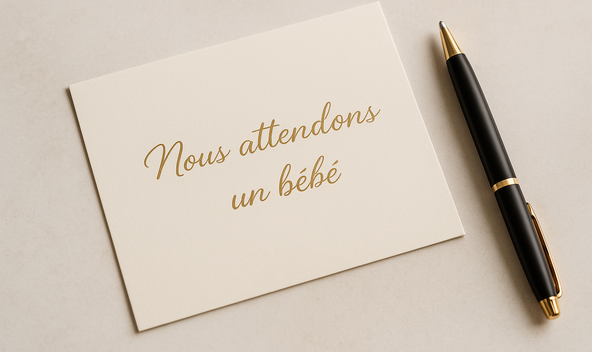 Nous attendons
un bébé